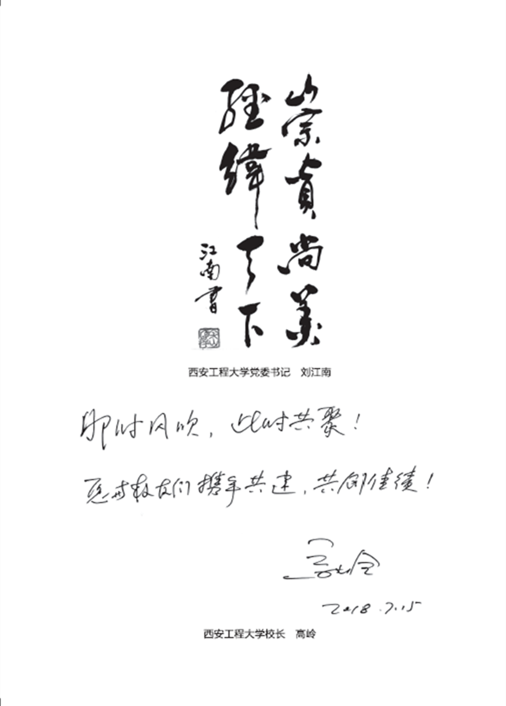 崇真尚美
經緯天下
江南書
西安工程大学党委书记 刘江南
那时风吹，此时共聚！
愿与校友们携手共建，共创佳绩！
高岭
2018.7.15
西安工程大学校长 高岭